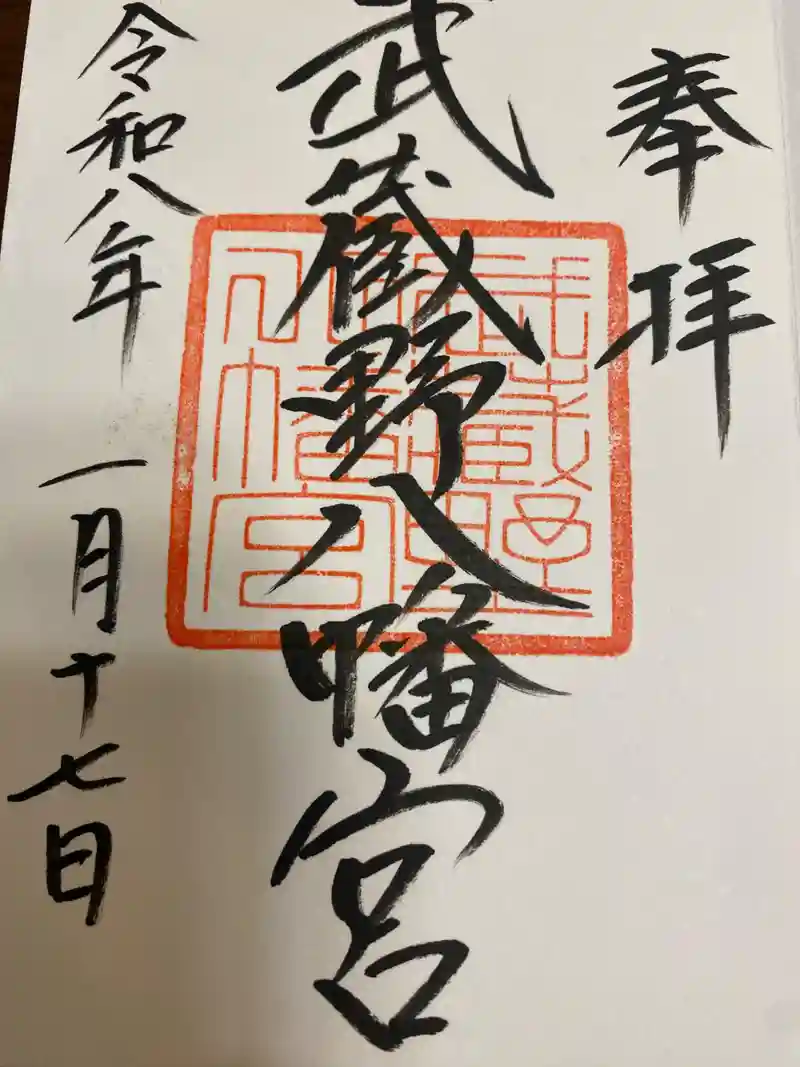 奉拝
武蔵野八幡宮
武蔵野
八幡宮
令和八年 一月十七日